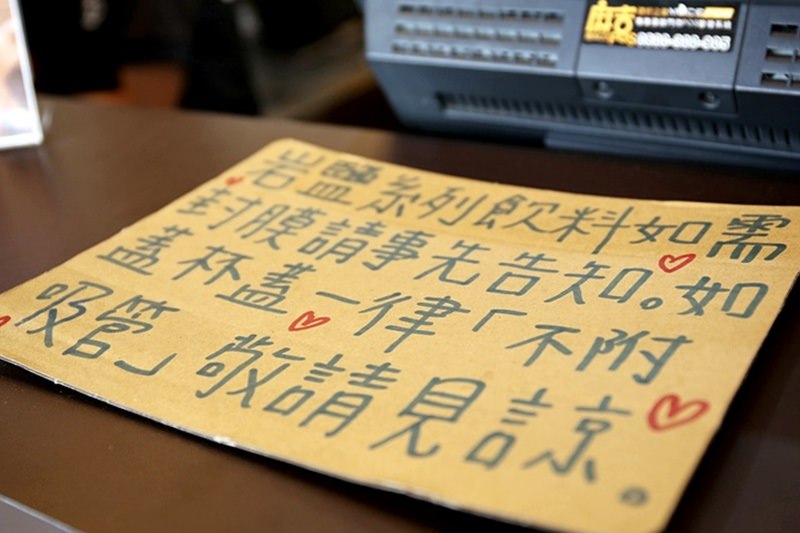 岩鹽系列飲料如需
封膜請事先告知。如
蓋杯蓋一律「不附
吸管」敬請見諒。